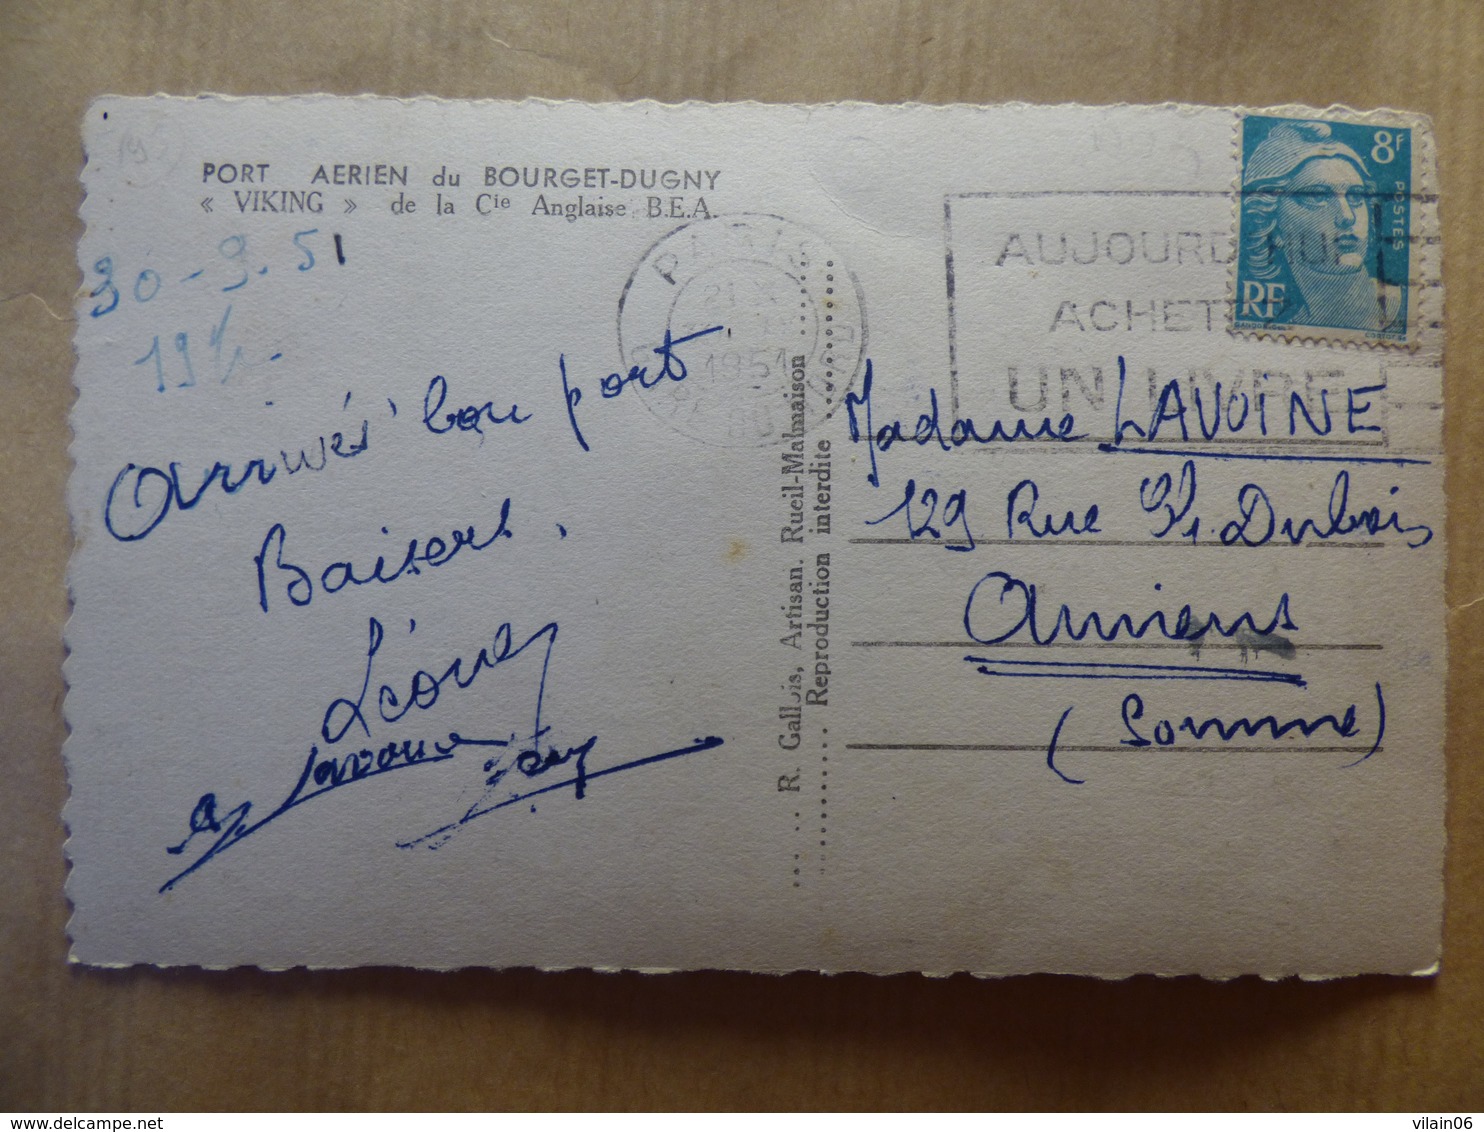 PORT AERIEN du BOURGET-DUGNY
« VIKING » de la Cie Anglaise B.E.A.
30-9-51
19h.
Arrivés bon port
Baisers.
Léone
8F
POSTES
RF
PARIS
1951
AUJOURD'HUI
ACHETEZ
UN LIVRE
R. Gallois, Artisan. Rueil-Malmaison
Reproduction interdite
Madame LAVOINE
129 Rue St. Dubois
Amiens
(Somme)
delcampe.net
vilain06